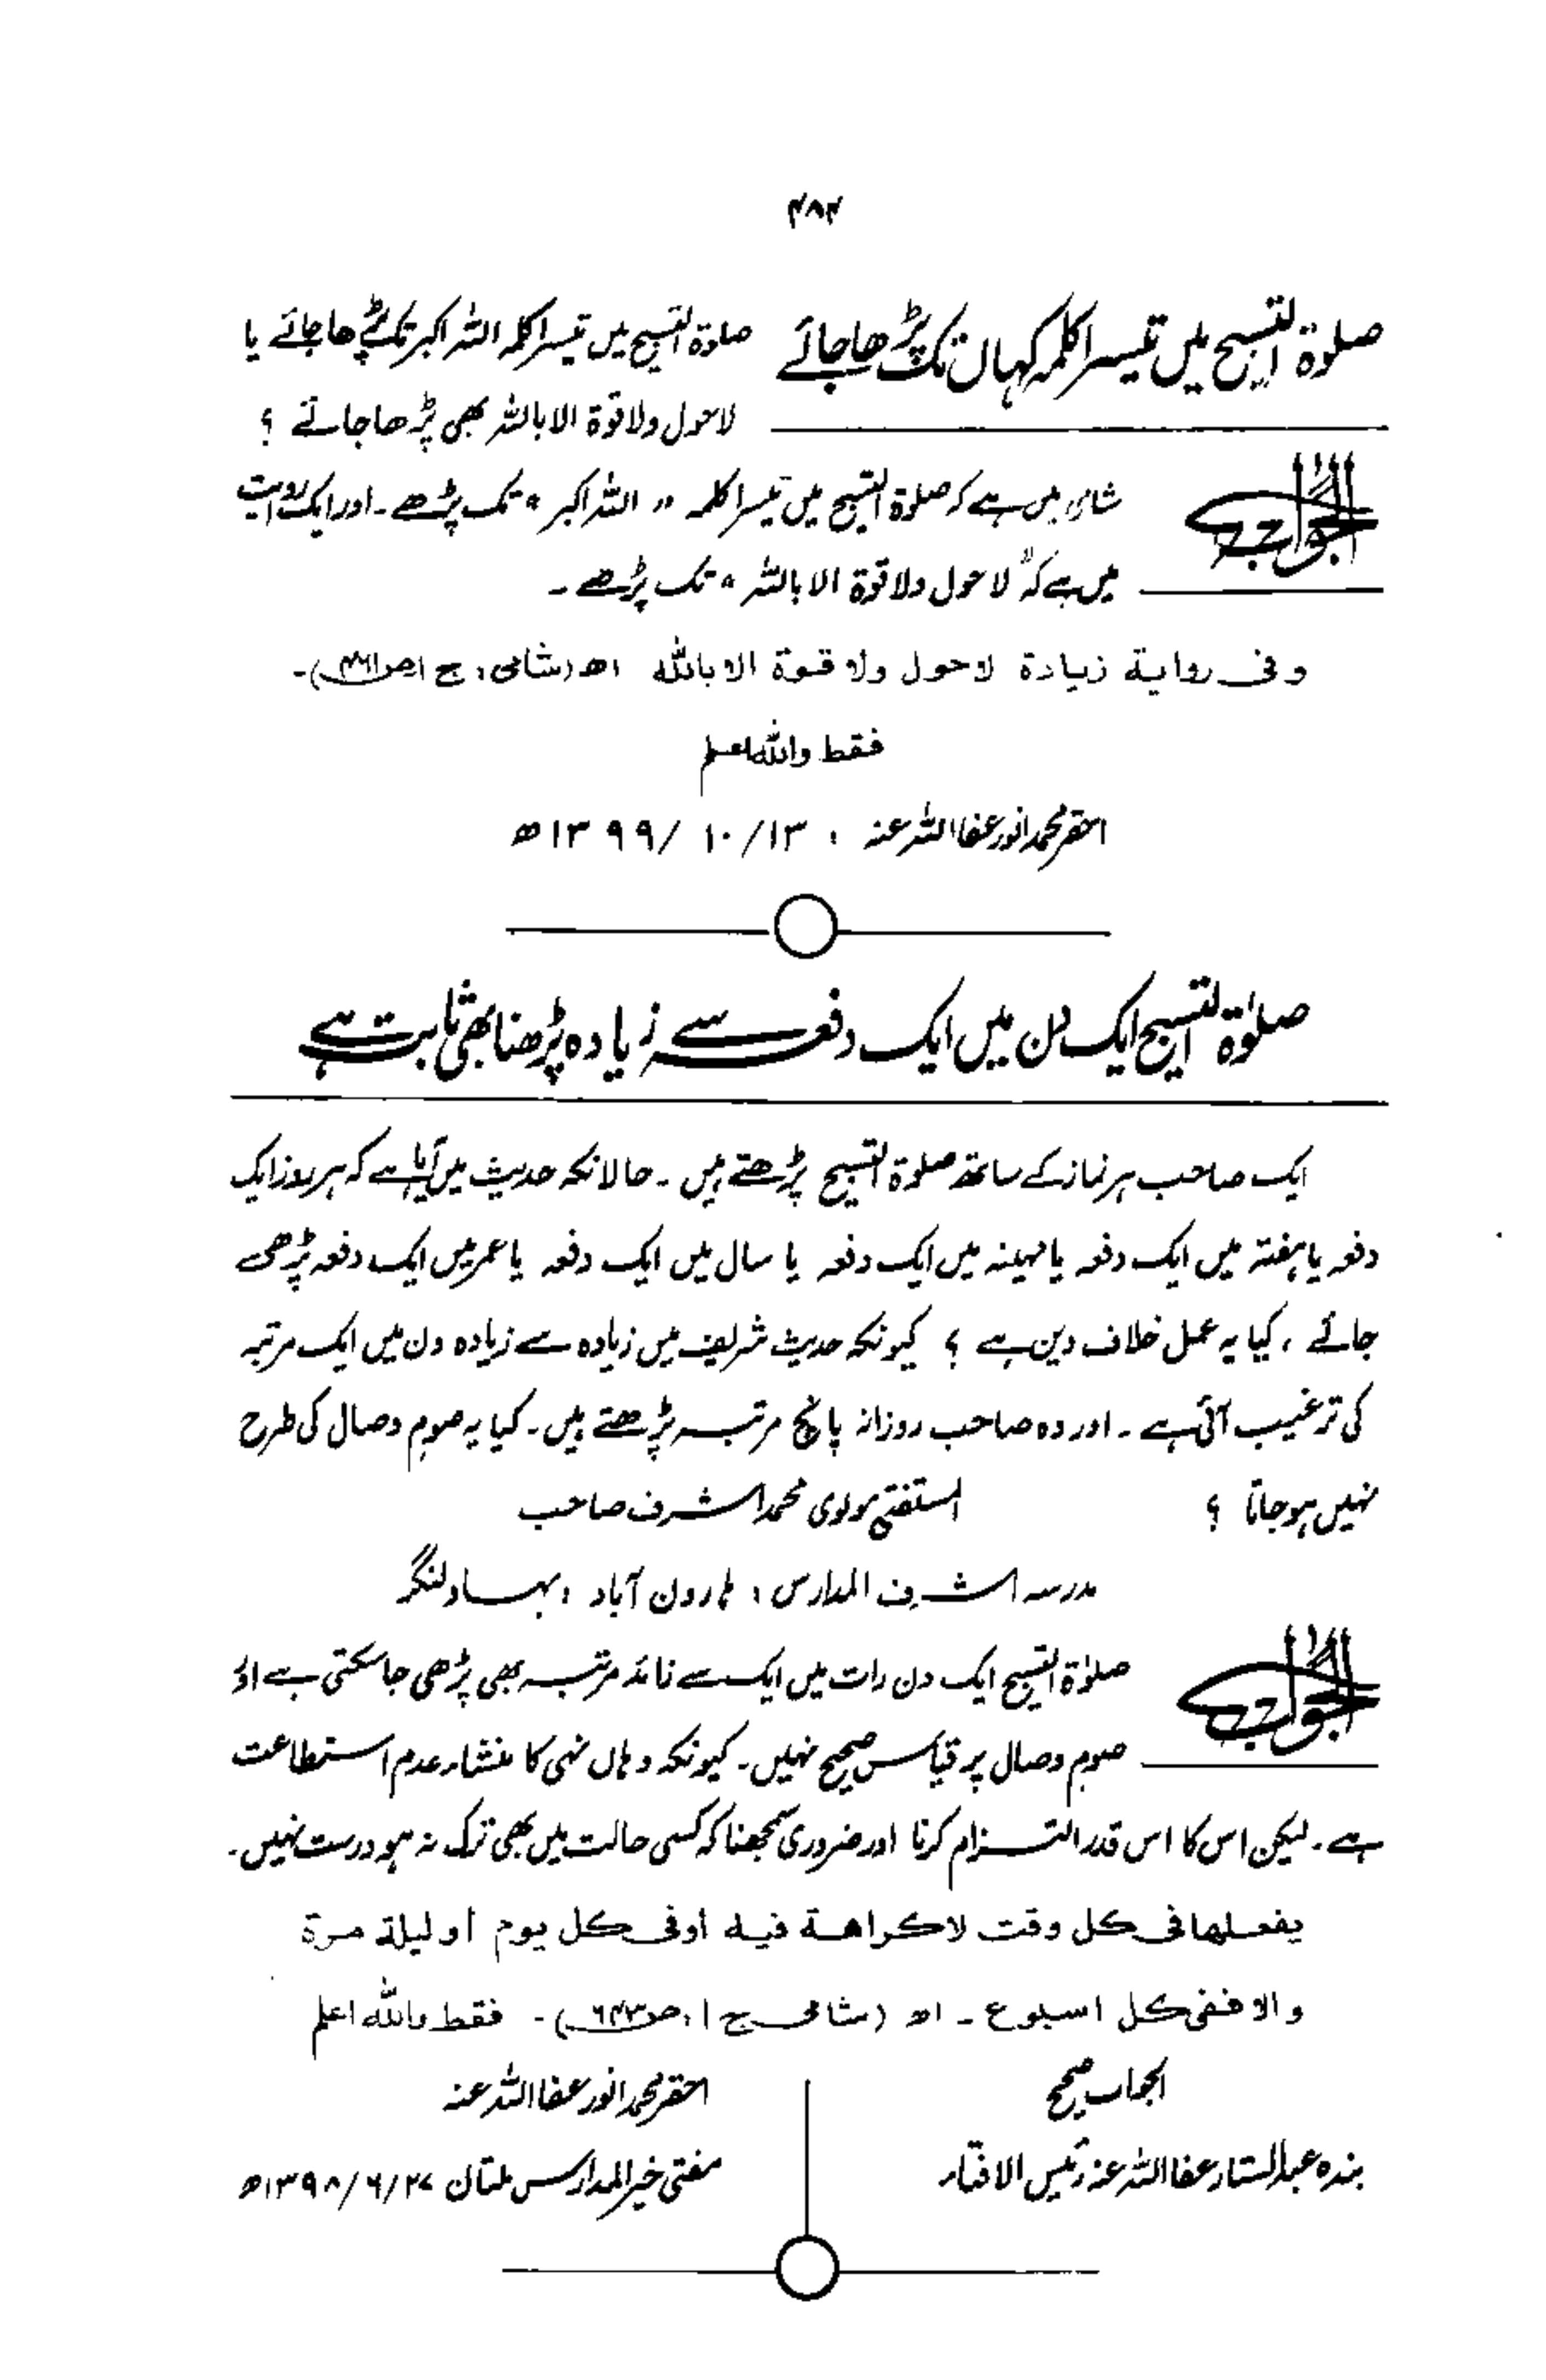 ۴۸۴
صلوٰۃ التسبیح میں تیسرا کلمہ کہاں تک پڑھا جائے
صلوٰۃ التسبیح میں تیسرا کلمہ اللہ اکبر تک پڑھا جائے یا
لاحول ولا قوۃ الا باللہ بھی پڑھا جائے ؟
الجواب
شامی میں ہے کہ صلوٰۃ التسبیح میں تیسرا کلمہ "اللہ اکبر" تک پڑھے۔ اور ایک روایت
میں ہے کہ "لا حول ولا قوۃ الا باللہ" تک پڑھے۔
وفی روایة زیادة لاحول ولا قوة الا بالله اھ (شامی، ج ۱ ص۴۶۱)۔
فقط واللہ اعلم
احقر محمد انور عفا اللہ عنہ ، ۱۳/۱۰/۱۳۹۹ھ
صلوٰۃ التسبیح ایک دن میں ایک دفعہ سے زیادہ پڑھنا بھی ثابت ہے
ایک صاحب ہر نماز کے ساتھ صلوٰۃ التسبیح پڑھتے ہیں۔ حالانکہ حدیث میں آیا ہے کہ ہر روز ایک
دفعہ یا ہفتہ میں ایک دفعہ یا مہینہ میں ایک دفعہ یا سال میں ایک دفعہ یا عمر میں ایک دفعہ پڑھی
جائے ، کیا یہ عمل خلاف دین ہے ؟ کیونکہ حدیث شریف میں زیادہ سے زیادہ دن میں ایک مرتبہ
کی ترغیب آئی ہے۔ اور وہ صاحب روزانہ پانچ مرتبہ پڑھتے ہیں۔ کیا یہ صوم وصال کی طرح
نہیں ہو جاتا ؟ المستفتی مولوی محمد اشرف صاحب
مدرسہ اشرف المدارس ، ہارون آباد ، بہاولنگر
الجواب
صلوٰۃ التسبیح ایک دن رات میں ایک سے زائد مرتبہ بھی پڑھی جا سکتی ہے اور
صوم وصال پر قیاس صحیح نہیں۔ کیونکہ وہاں نہی کا منشاء عدم استطاعت
ہے۔ لیکن اس کا اس قدر التزام کرنا اور ضروری سمجھنا کہ کسی حالت میں بھی ترک نہ ہو درست نہیں۔
یفعلها فی کل وقت لا کراهة فیه أو فی کل یوم أو لیلة مرة
والا ففی کل اسبوع۔ اھ (شامی ج ۱، ص۶۴۳)۔ فقط واللہ اعلم
الجواب صحیح
بندہ عبدالستار عفا اللہ عنہ رئیس الافتاء
احقر محمد انور عفا اللہ عنہ
مفتی خیر المدارس ملتان ۲۷/۶/۱۳۹۸ھ